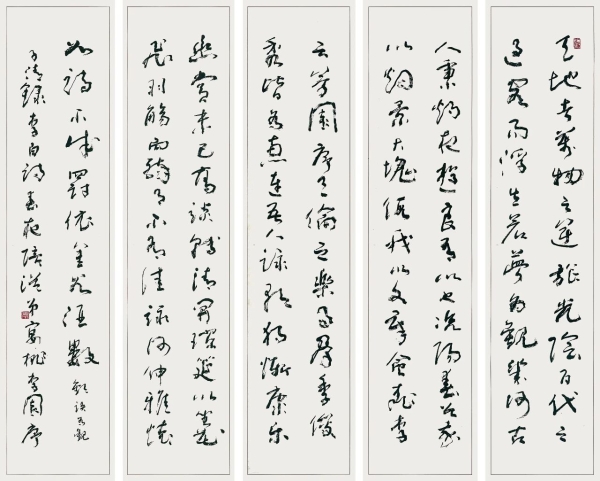 天地者萬物之逆旅光陰百代之
過客而浮生若夢為觀幾何古
人秉燭夜遊良有以也況陽春召我
以烟景大塊假我以文章會桃李
之芳園序天倫之樂事群季俊
秀皆為惠連吾人詠歌獨慚康樂
幽賞未已高談轉清開瓊筵以坐花
飛羽觴而醉月不有佳詠何伸雅懷
如詩不成罰依金谷酒數 歡誤為觀
錄李白詩春夜陪從弟宴桃李園序